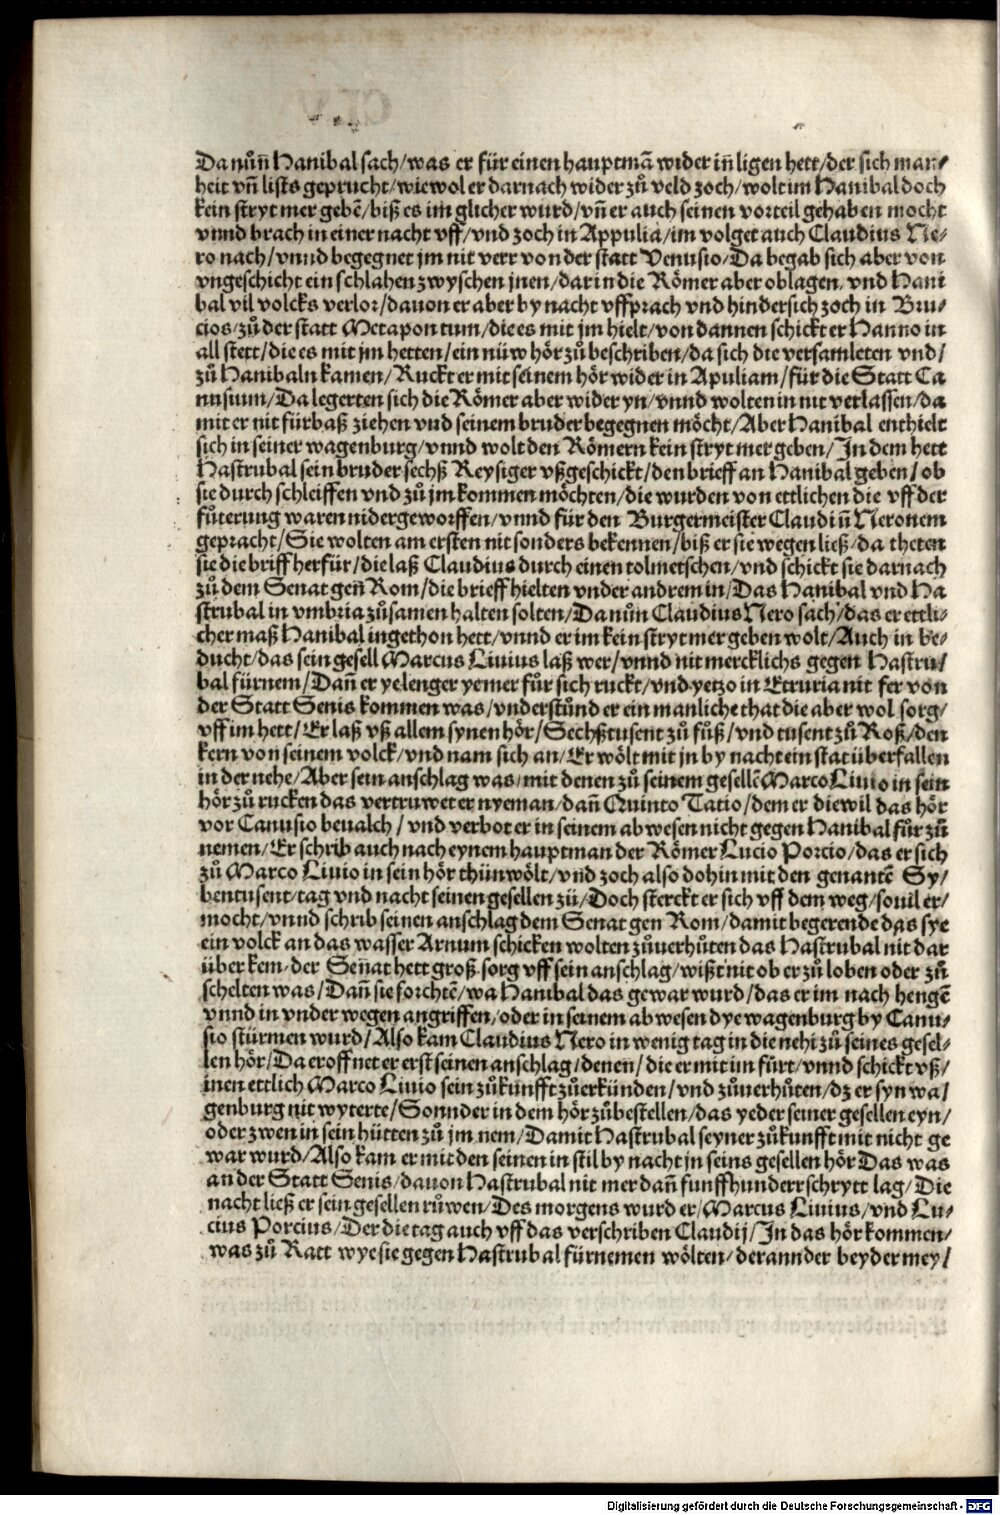 Da nůn̄ Hanibal sach/was er für einen hauptmā wider in̄ ligen hett/der sich man⸗
heit vn̄ lists geprucht/wiewol er darnach wider zů veld zoch/wolt im Hanibal doch
kein stryt mer gebē/biß es im glicher wurd/vn̄ er auch seinen vorteil gehaben mocht
vnnd brach in einer nacht vff/vnd zoch in Appulia/im volget auch Claudius Ne⸗
ro nach/vnnd begegnet jm nit verr von der statt Venusio/Da begab sich aber von
vngeschicht ein schlahen zwyschen jnen/darin die Römer aber oblagen/vnd Hani
bal vil volcks verlor/dauon er aber by nacht vffprach vnd hindersich zoch in Bru⸗
cios/zů der statt Metapontum/die es mit jm hielt/von dannen schickt er Hanno in
all stett/die es mit jm hetten/ein nüw hör zů beschriben/da sich die versamleten vnd/
zů Hanibaln kamen/Ruckt er mit seinem hör wider in Apuliam/für die Statt Ca
nusium/Da legerten sich die Römer aber wider yn/vnnd wolten in nit verlassen/da
mit er nit fürbaß ziehen vnd seinem bruder begegnen möcht/Aber Hanibal enthielt
sich in seiner wagenburg/vnnd wolt den Römern kein stryt mer geben/In dem hett
Hastrubal sein bruder sechß Reysiger vßgeschickt/den brieff an Hanibal geben/ob
sie durch schleiffen vnd zů jm kommen möchten/die wurden von ettlichen die vff der
fůterung waren nidergeworffen/vnnd für den Burgermeister Claudiū Neronem
gepracht/Sie wolten am ersten nit sonders bekennen/biß er sie wegen ließ/da theten
sie die briff herfür/die laß Claudius durch einen tolmetschen/vnd schickt sie darnach
zů dem Senat gen̄ Rom/die brieff hielten vnder andrem in/Das Hanibal vnd Ha
strubal in vmbria zůsamen halten solten/Da nůn Claudius Nero sach/das er ettli⸗
cher maß Hanibal ingethon hett/vnnd er im kein stryt mer geben wolt/Auch in be⸗
ducht/das sein gesell Marcus Liuius laß wer/vnnd nit mercklichs gegen Hastru/
bal fürnem/Dan̄ er yelenger yemer für sich ruckt/vnd yetzo in Etruria nit fer von
der Statt Senis kommen was/vnderstůnd er ein manliche that die aber wol sorg/
vff im hett/Er laß vß allem synen hör/Sechßtusent zů fůß/vnd tusent zů Roß/den
kern von seinem volck/vnd nam sich an/Er wölt mit jn by nacht ein stat überfallen
in der nehe/Aber sein anschlag was/mit denen zů seinem gesellē Marco Liuio in sein
hör zů rucken das vertruwet er nyeman/dan̄ Quinto Tatio/dem er diewil das hör
vor Canusio beualch/vnd verbot er in seinem abwesen nicht gegen Hanibal für zů
nemen/Er schrib auch nach eynem hauptman der Römer Lucio Porcio/das er sich
zů Marco Liuio in sein hör thůn wölt/vnd zoch also dohin mit den genantē Sy/
bentusent/tag vnd nacht seinen gesellen zů/Doch sterckt er sich vff dem weg/souil er/
mocht/vnnd schrib seinen anschlag dem Senat gen Rom/damit begerende das sye
ein volck an das wasser Arnum schicken wolten zůuerhůten das Hastrubal nit dar
über kem/der Sen̄at hett groß sorg vff sein anschlag/wißt nit ob er zů loben oder zů
schelten was/Dan̄ sie forchtē/wa Hanibal das gewar wurd/das er im nach hengē
vnnd in vnder wegen angriffen/oder in seinem abwesen dye wagenburg by Canu⸗
sio stürmen wurd/Also kam Claudius Nero in wenig tag in die nehi zů seines gesel⸗
len hör/Da eroffnet er erst seinen anschlag/denen/die er mit im fürt/vnnd schickt vß/
inen ettlich Marco Liuio sein zůkunfft zůerkünden/vnd zůuerhůten/dz er syn wa/
genburg nit wyterte/Sonnder in dem hör zůbestellen/das yeder seiner gesellen eyn/
oder zwen in sein hütten zů jm nem/Damit Hastrubal seyner zůkunfft mit nicht ge
war wurd/Also kam er mit den seinen in stil by nacht jn seins gesellen hör Das was
an der Statt Senis/dauon Hastrubal nit mer dan̄ funffhunderrschrytt lag/Die
nacht ließ er sein gesellen růwen/Des morgens wurd er/Marcus Liuius/vnd Lu⸗
cius Porcius/Der die tag auch vff das verschriben Claudij/In das hör kommen/
was zů Ratt wye sie gegen Hastrubal fürnemen wölten/der annder beyder mey/
Digitalisierung gefördert durch die Deutsche Forschungsgemeinschaft - DFG